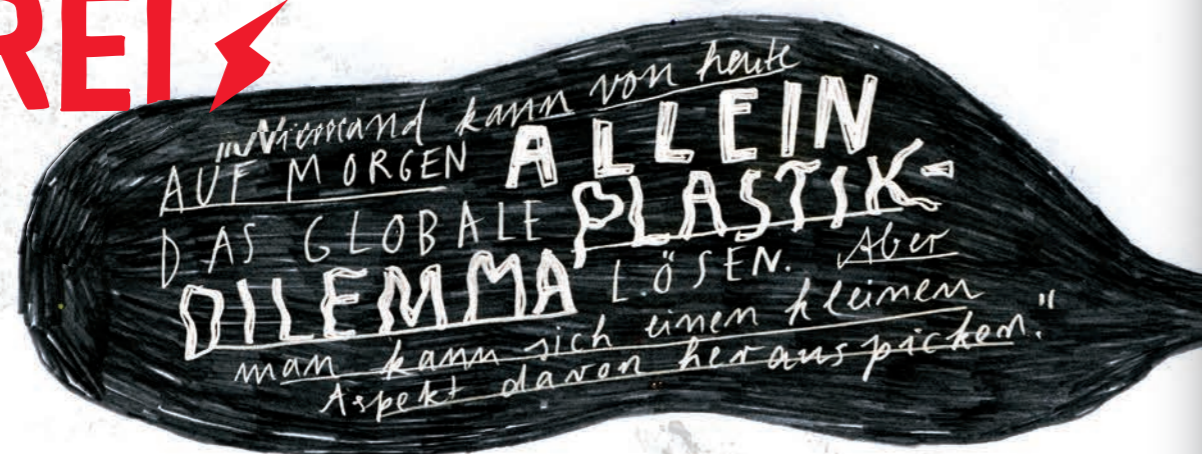 REI
„Niemand kann von heute
AUF MORGEN ALLEIN
DAS GLOBALE PLASTIK-
DILEMMA LÖSEN. Aber
man kann sich einen kleinen
Aspekt davon herauspicken."